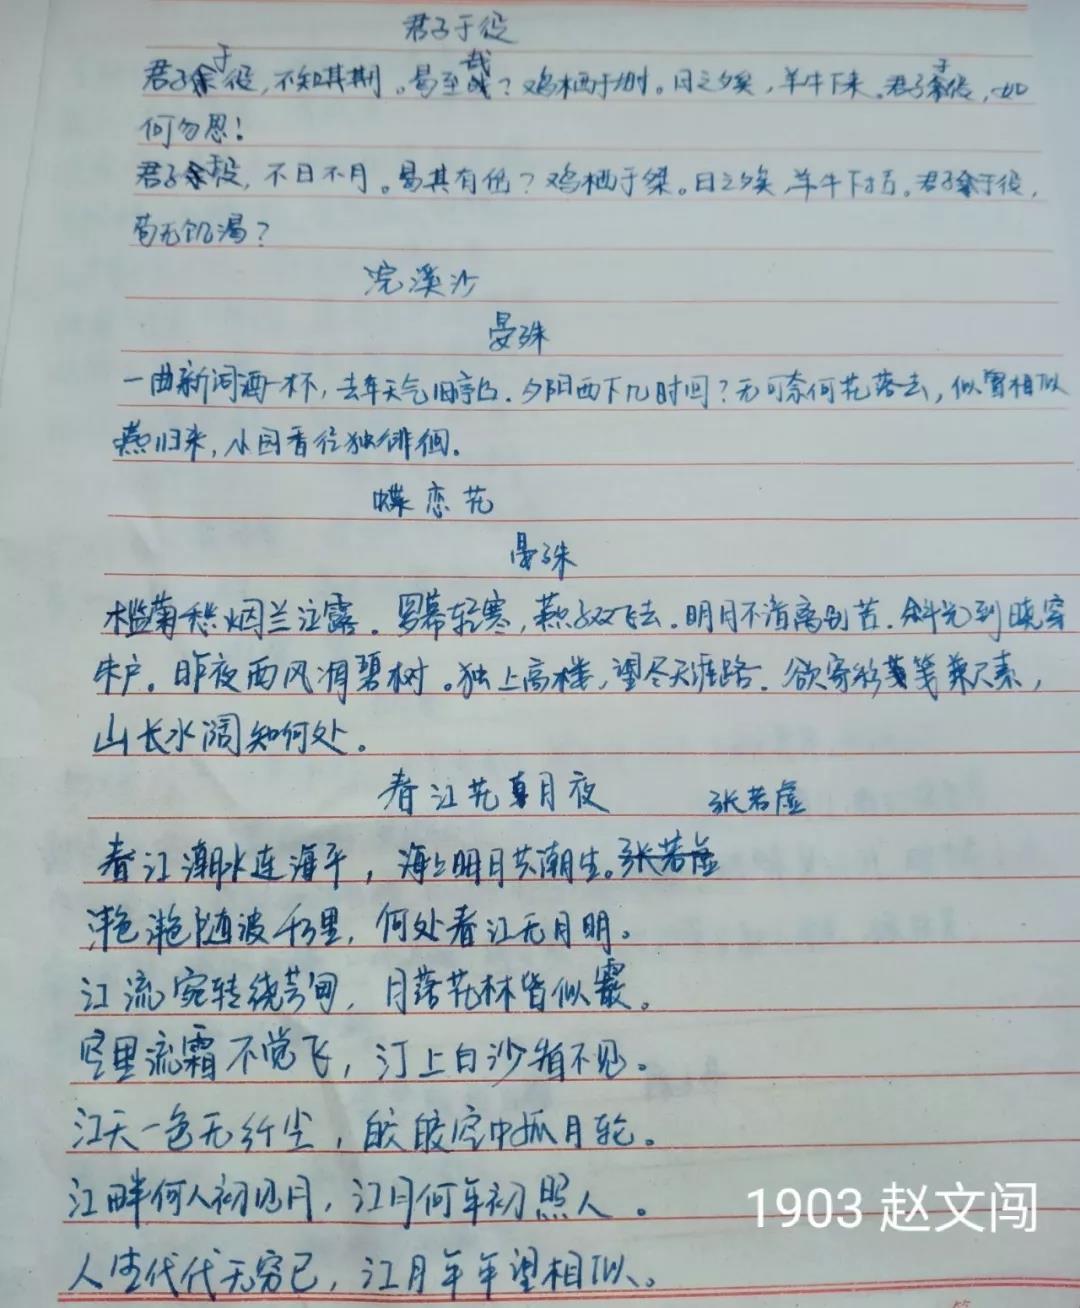 君子于役
君子于役，不知其期。曷至哉？鸡栖于埘。日之夕矣，羊牛下来。君子于役，如
何勿思！
君子于役，不日不月。曷其有佸？鸡栖于桀。日之夕矣，羊牛下括。君子于役，
苟无饥渴？
浣溪沙
晏殊
一曲新词酒一杯，去年天气旧亭台。夕阳西下几时回？无可奈何花落去，似曾相似
燕归来，小园香径独徘徊。
蝶恋花
晏殊
槛菊愁烟兰泣露。罗幕轻寒，燕子双飞去。明月不谙离别苦。斜光到晓穿
朱户。昨夜西风凋碧树。独上高楼，望尽天涯路。欲寄彩笺兼尺素，
山长水阔知何处。
春江花月夜 张若虚
春江潮水连海平，海上明月共潮生。张若虚
滟滟随波千里，何处春江无月明。
江流宛转绕芳甸，月落花林皆似霰。
空里流霜不觉飞，汀上白沙看不见。
江天一色无纤尘，皎皎空中孤月轮。
江畔何人初见月，江月何年初照人。
人生代代无穷已，江月年年望相似。
1903 赵文闯